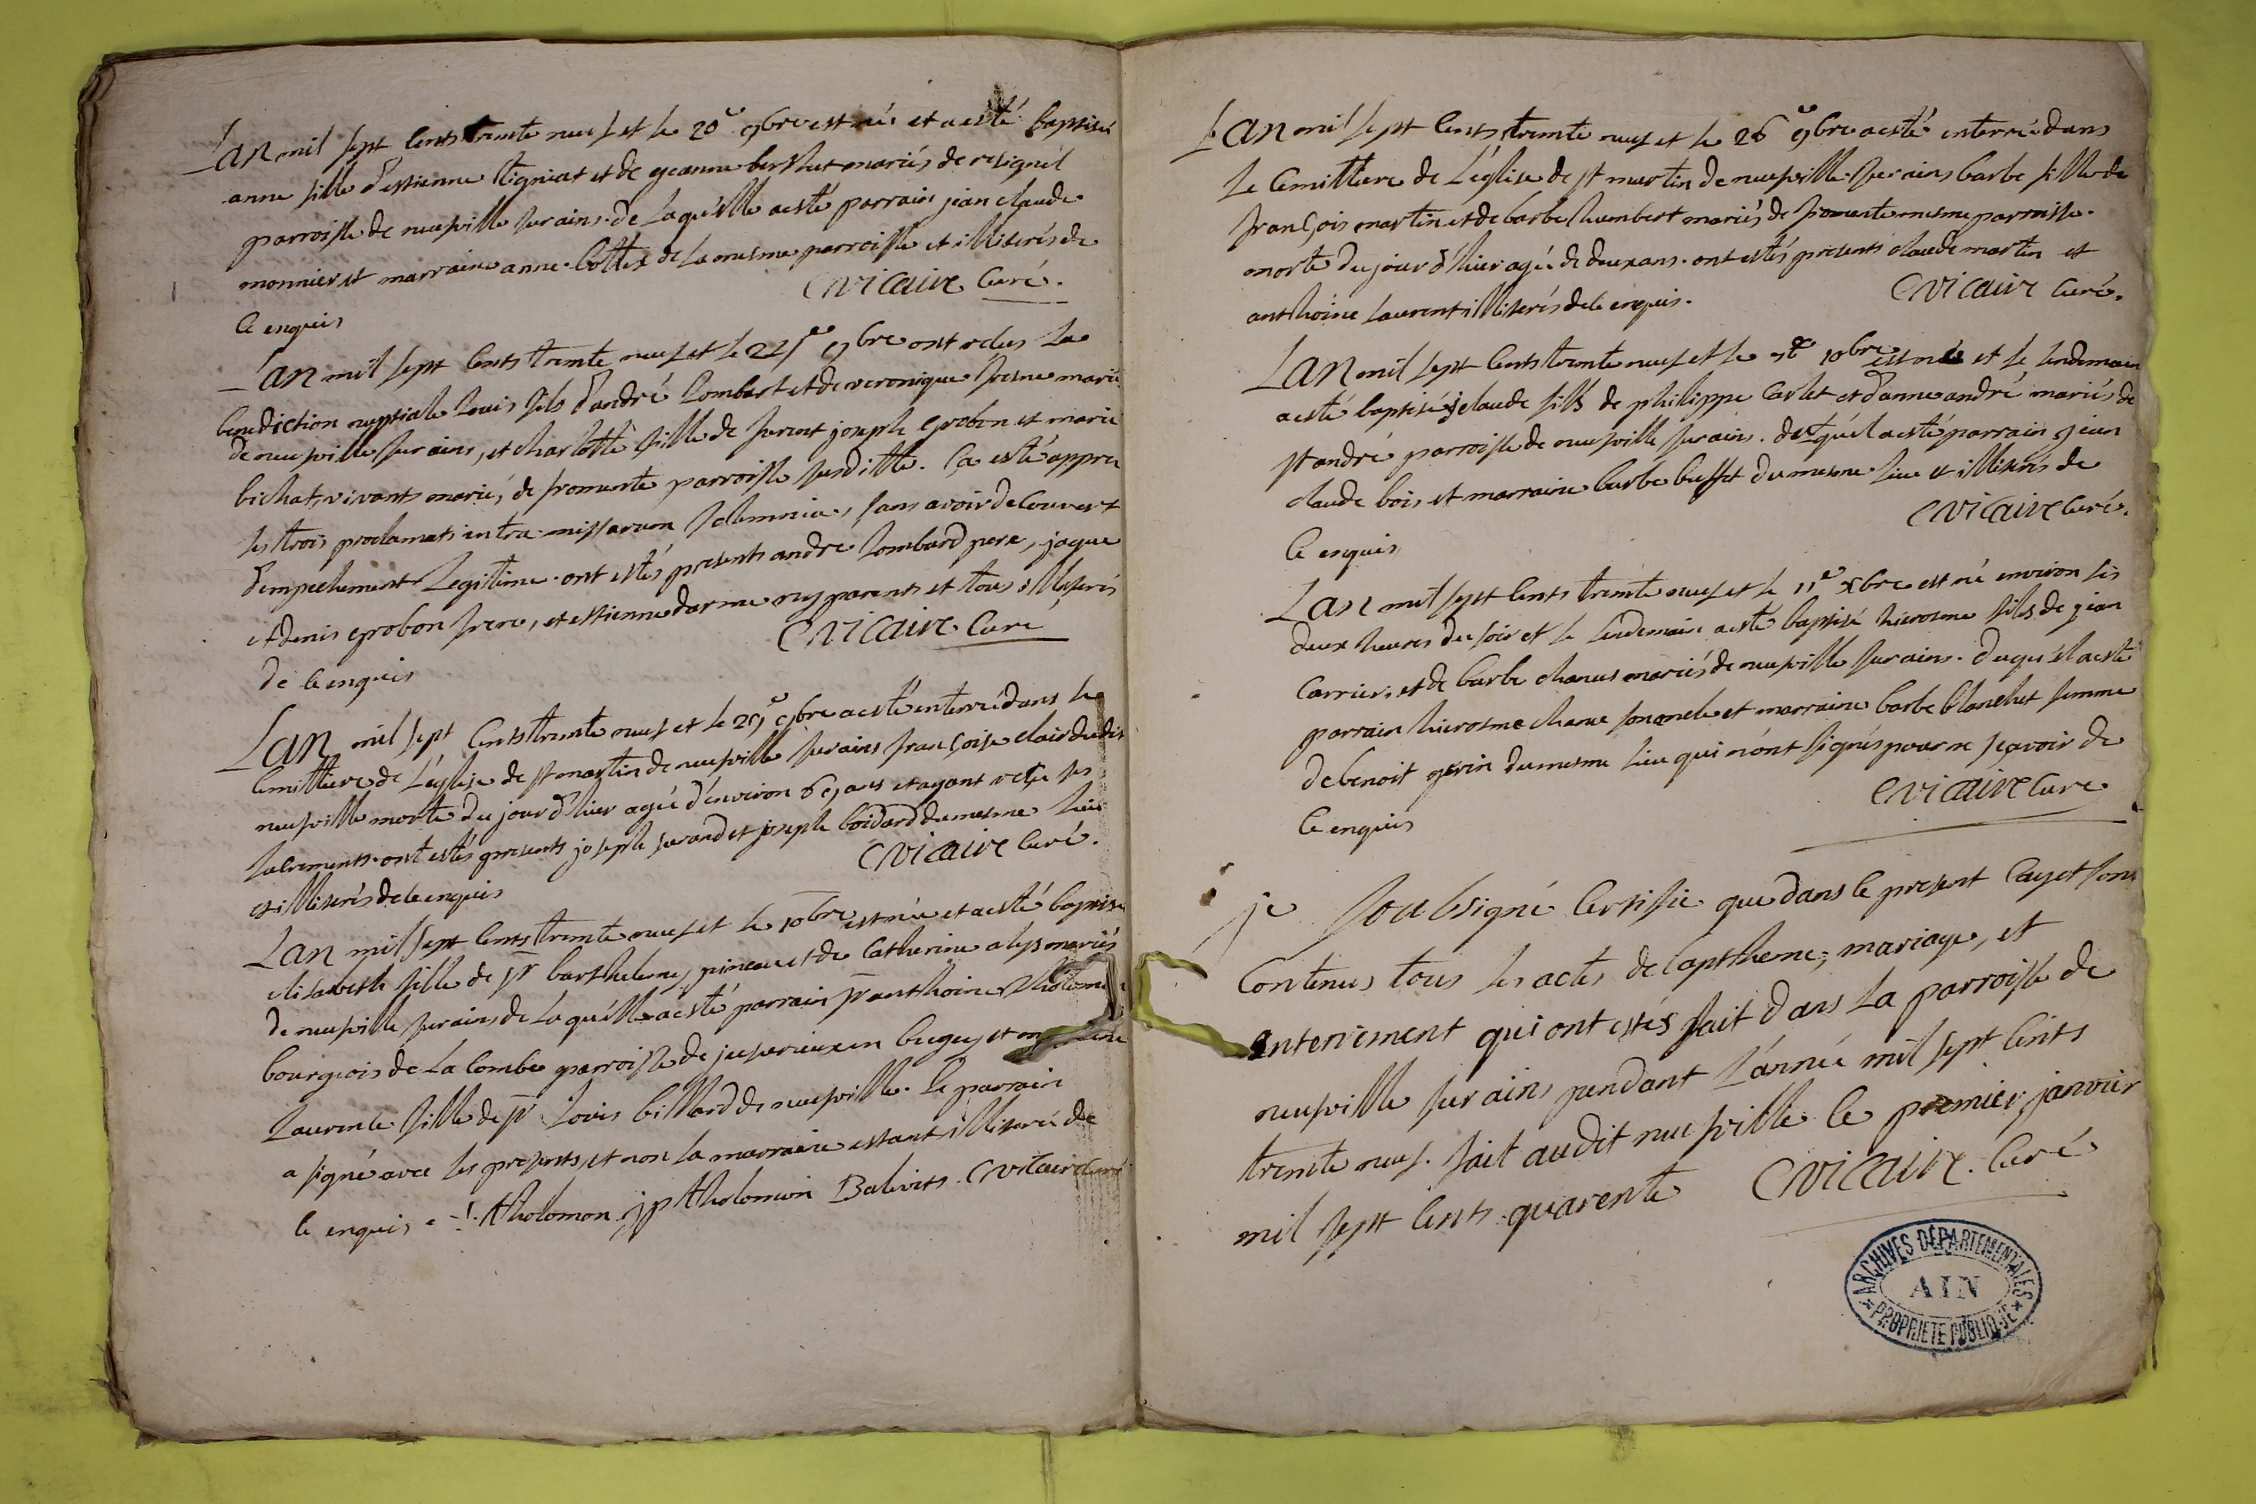 Lan mil sept cents trente neuf et le 20e 9bre est née et a esté baptisée
anne fille d'estienne et de jeanne mariés de resignel
parroisse de neufville sur ains. de laquelle a esté parrain jean claude
monnier et marraine anne cottex de la mesme parroisse et illiterés de
ce enquis
Cvicaire curé.
Lan mil sept cents trente neuf et le 9bre ont receus la
benediction nuptiale louis fils d'andré Lombart et de veronique mariés
de neufville sur ains, et charlotte fille de joseph grobon et marie
bichat vivants mariés de fromente parroisse susditte. Ca esté apprés
les trois proclamats intra missarum solemnia, sans avoir decouvert
d'empechement legitime. ont estés presents andre Lombard pere, jaque
et denis grobon frere, et estienne darme parents et tous illiterés
de ce enquis
Cvicaire Curé
Lan mil sept Cents trente neuf et le 9bre a esté enterrée dans le
Cemittiere de L'eglise de st martin de neufville sur ains françoise clair dudit
neufville morte du jour d'hier agée d'environ ans et ayant reçu ses
sacrements. ont estés presents joseph et joseph boidard du mesme lieu
et illiterés de ce enquis
Cvicaire curé.
Lan mil sept Cents trente neuf et le 10bre est née et a esté baptisée
elisabeth fille de sr barthelemy pineau et de Catherine mariés
de neufville sur ains de laquelle a esté parrain sr anthoine
bourgeois de La Combe parroisse de jusurieux en bugey et
Laurence fille de sr Louis billard de neufville. le parrain
a signé avec les presents, et non la marraine estant illiterée de
ce enquis. Cvicaire curé
Lan mil sept Cents trente neuf et le 26e 9bre a esté enterrée dans
Le Cemittiere de L'eglise de st martin de neufville sur ains barbe fille de
françois martin et de barbe humbert mariés de fromente mesme parroisse.
morte du jour d'hier agée de deux ans. ont estés presents claude martin et
anthoine Laurent illiterés de ce enquis.
Cvicaire Curé.
Lan mil sept Cents trente neuf et le 10bre est né et le lendemain
a esté baptisé claude fils de philippe Carlet et d'anne andré mariés de
st andré parroisse de neufville sur ains. duquel a esté parrain jean
claude bois et marraine barbe buffet du mesme lieu et illiterés de
Ce enquis
Cvicaire Curé.
Lan mil sept Cents trente neuf et le 11e xbre est né environ les
deux heures du soir et le lendemain a esté baptisé hierosme fils de jean
Carrier et de barbe chanus mariés de neufville sur ains. duquel a esté
parrain hierosme chanu son oncle et marraine barbe blanchet femme
de benoit gerin du mesme lieu qui n'ont signés pour ne sçavoir de
Ce enquis
Cvicaire Curé
je Soubsigné Certifie que dans le present Cayet sont
Contenus tous les actes de baptheme, mariage, et
enterrement qui ont estés fait dans La parroisse de
neufville sur ains pendant L'année mil sept Cents
trente neuf. fait audit neufville le premier janvier
mil sept Cents quarente Cvicaire. Curé
ARCHIVES DÉPARTEMENTALES
AIN
PROPRIÉTÉ PUBLIQUE